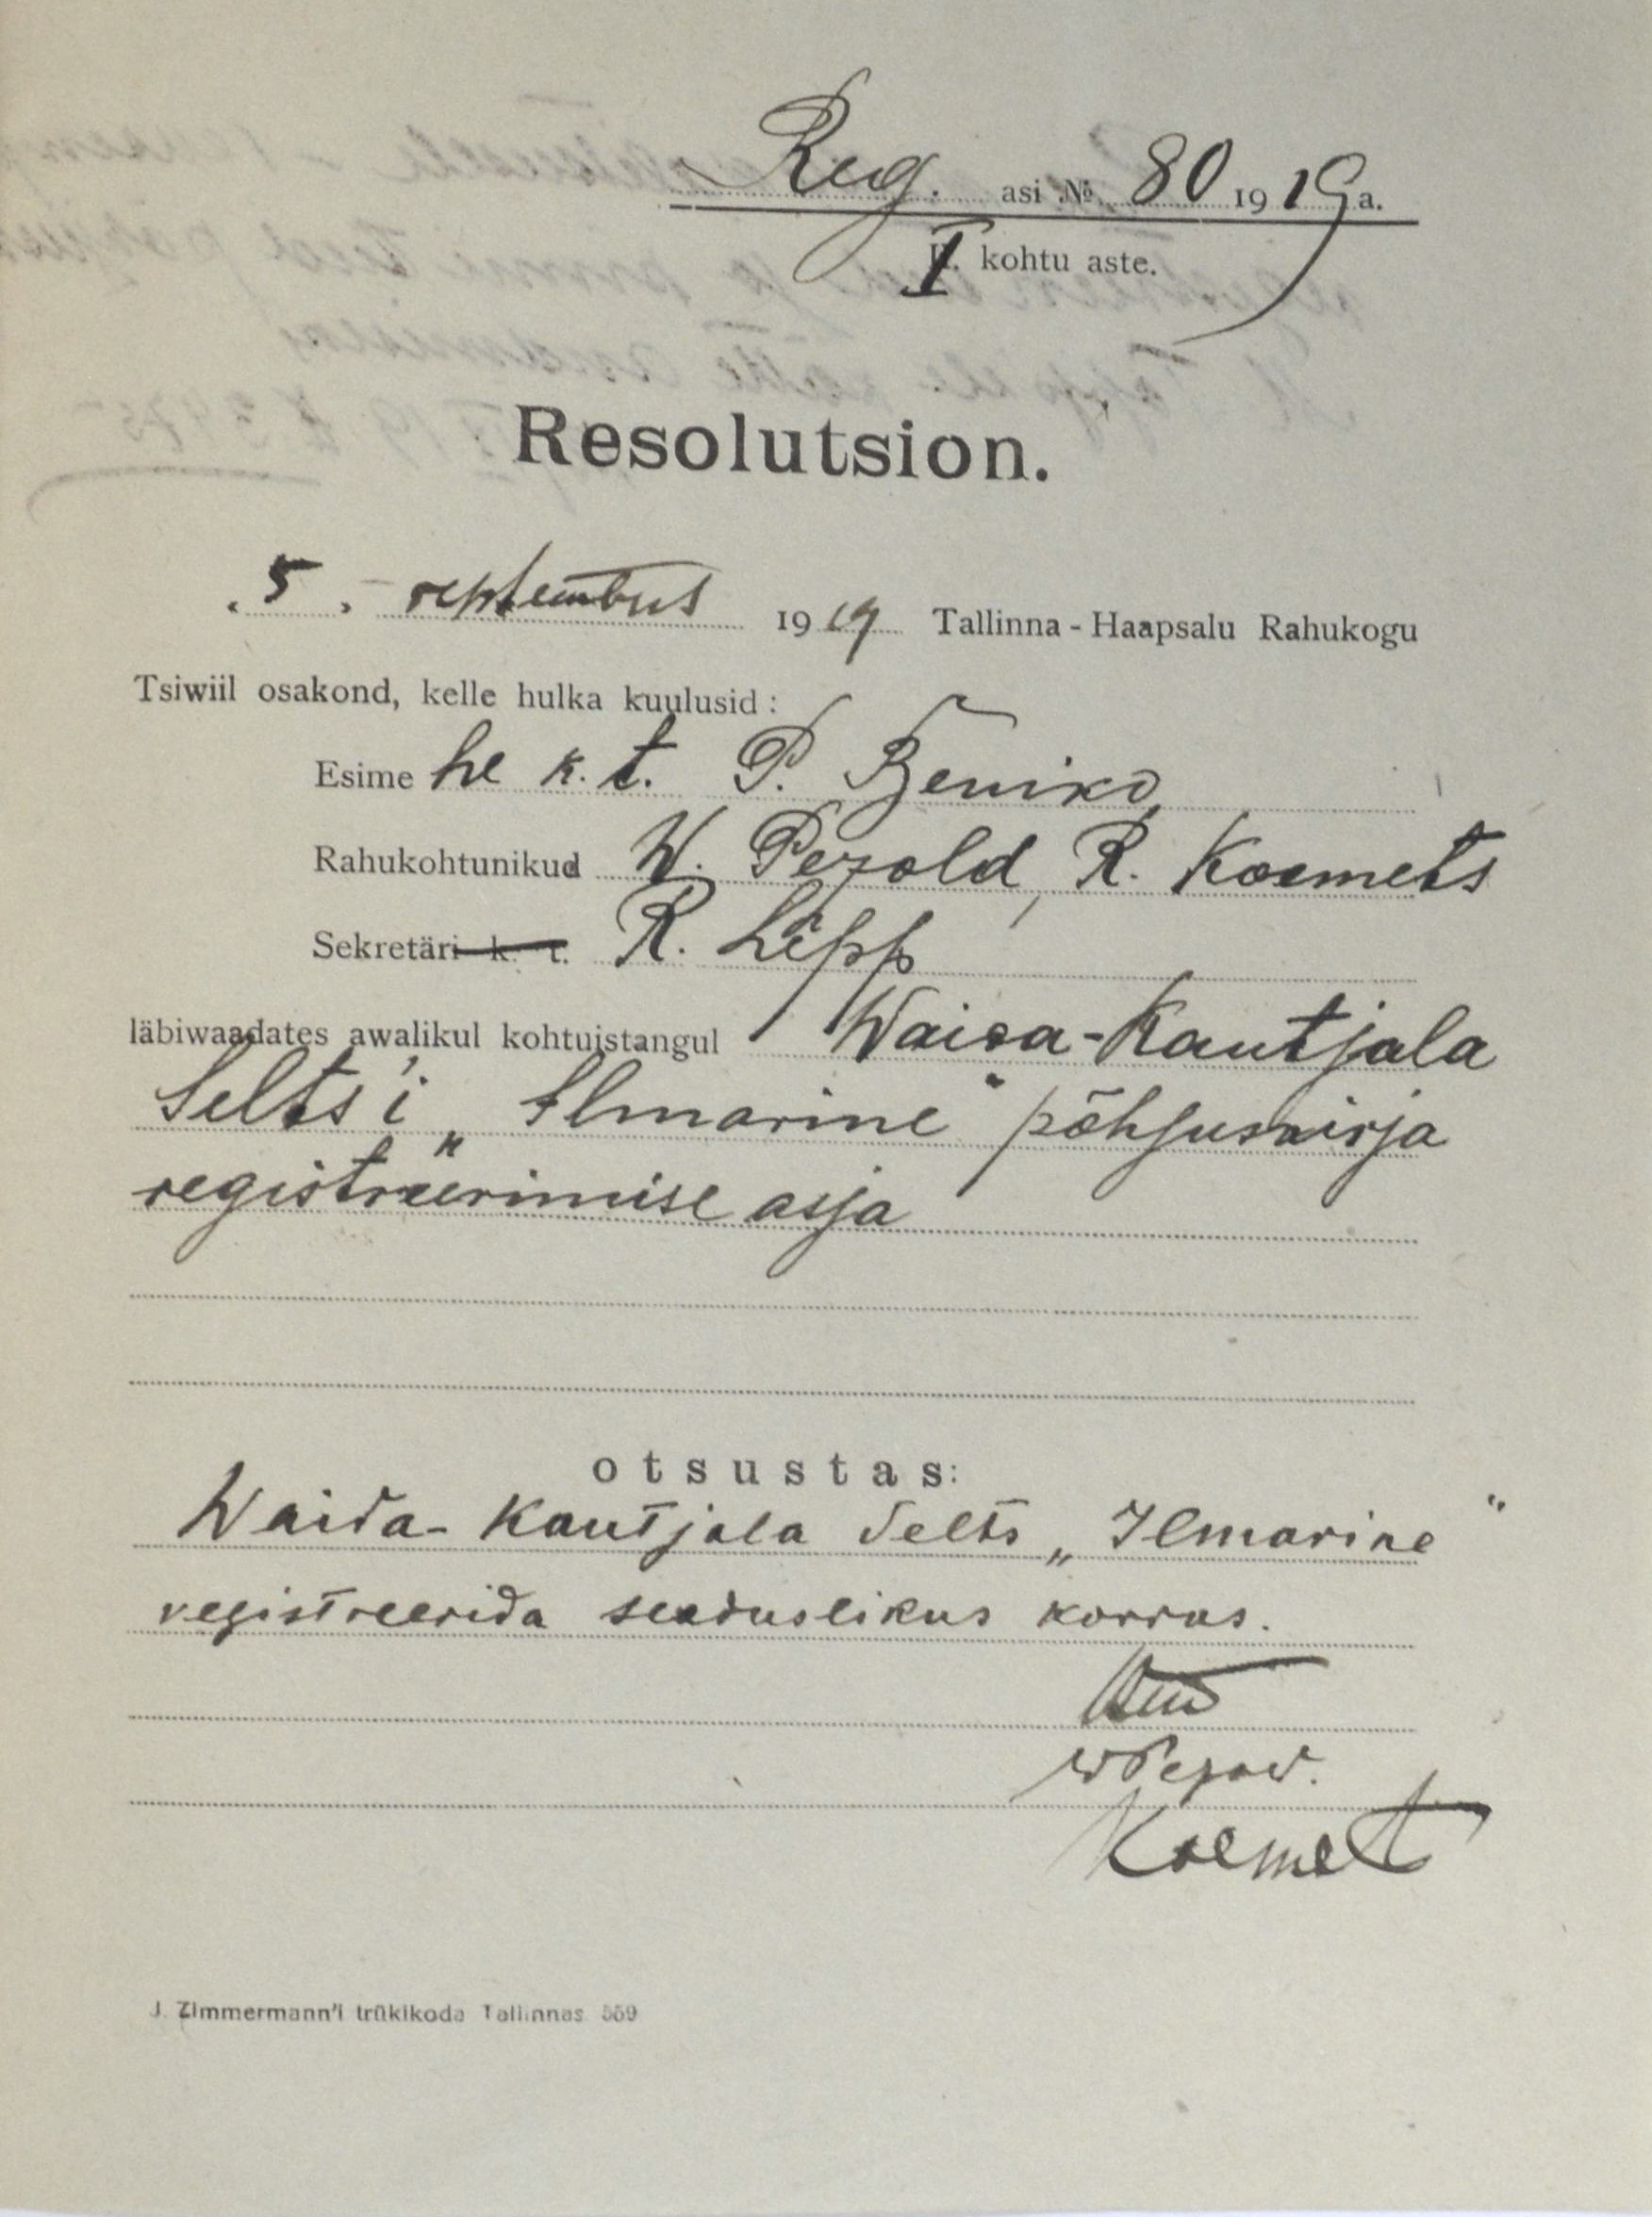 Reg. asi № 80 1919 a.
I. kohtu aste.
Resolutsion.
„ 5 „ septembris 1919 Tallinna-Haapsalu Rahukogu
Tsiwiil osakond, kelle hulka kuulusid:
Esimehe k. t. P. Beniko,
Rahukohtunikud W. Pezold, R. Koemets
Sekretäri k. t. R. Lepp
läbiwaadates awalikul kohtuistangul Waida-Kautjala
Selts'i „Ilmarine" põhjuskirja
registreerimise asja
otsustas:
Waida-Kautjala Selts „Ilmarine"
registreerida seaduslikus korras.
WPezold.
Koemets
J. Zimmermann'i trükikoda Tallinnas 559